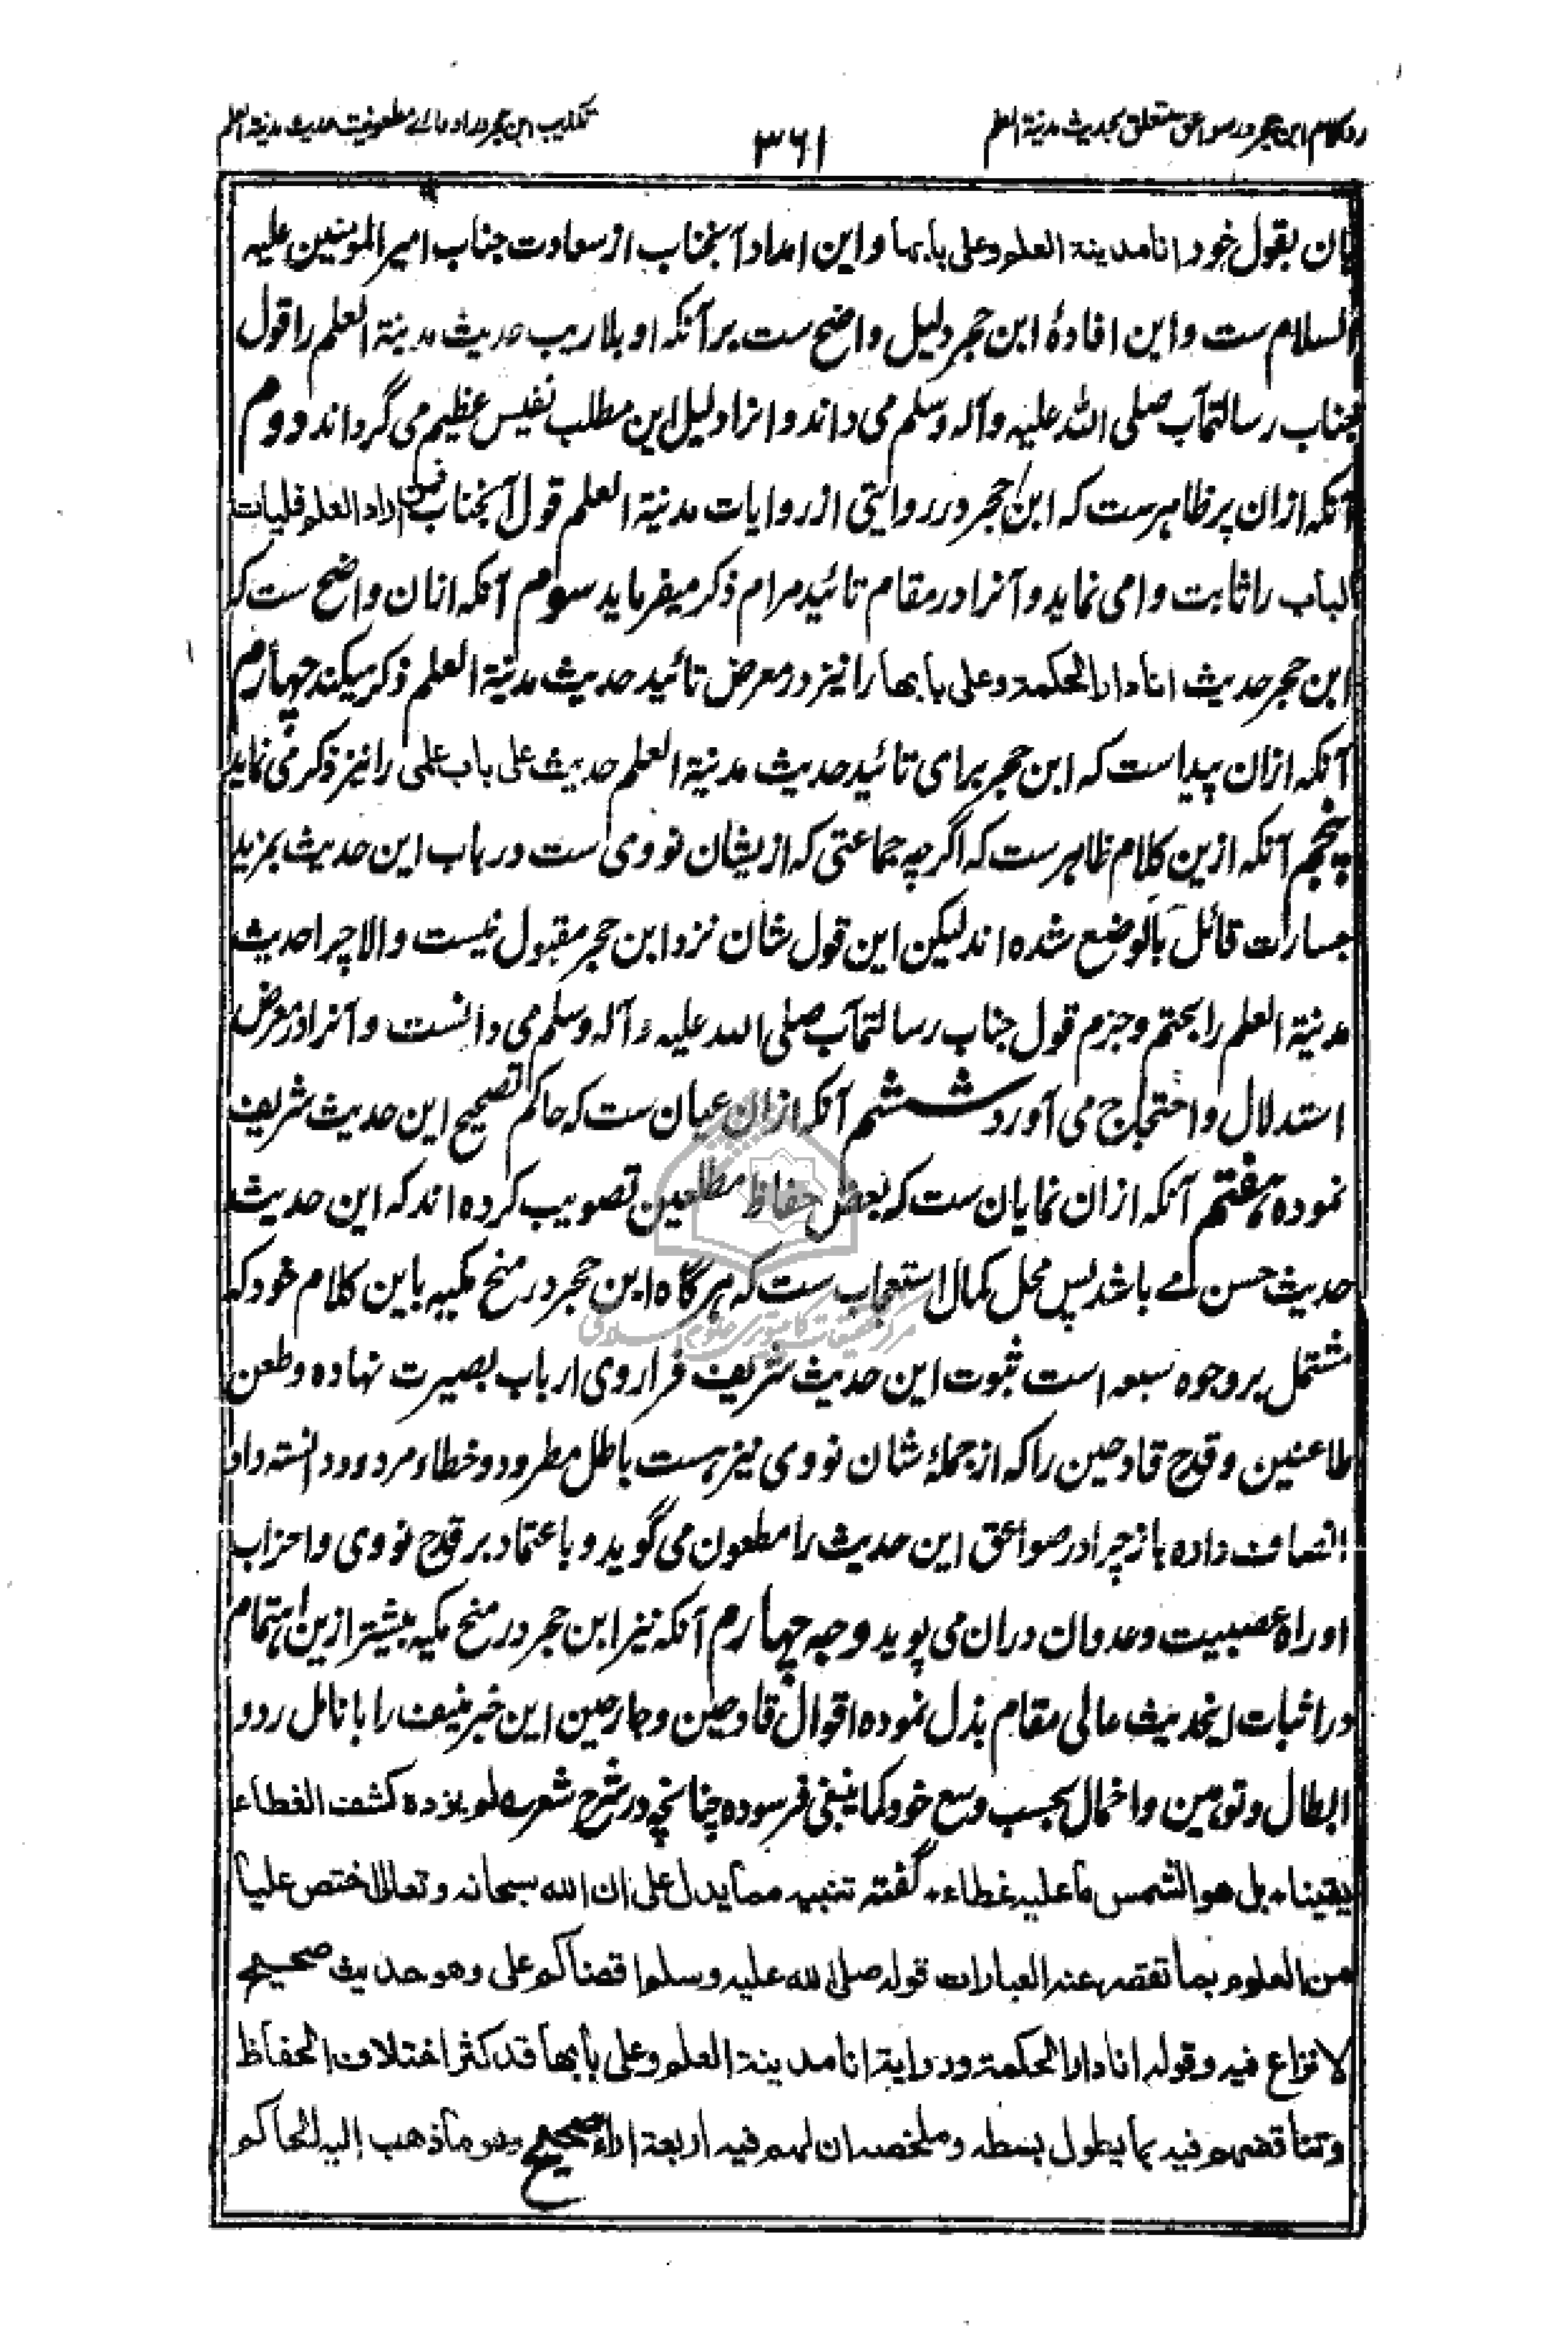 رد کلام ابن حجر در صواعق متعلق بحدیث مدینة العلم
۳۶۱
تکذیب ابن حجر در ادعای مطعونیت حدیث مدینة العلم
بان بقول خود انا مدینة العلم وعلی بابها و این امداد آنجناب از سعادت جناب امیر المومنین علیه
السلام ست و این افادهٔ ابن حجر دلیل واضح ست بر آنکه او بلا ریب حدیث مدینة العلم را قول
جناب رسالتمآب صلی الله علیه وآله وسلم می داند و انرا دلیل این مطلب نفیس عظیم می گرداند دوم
آنکه ازان پر ظاهرست که ابن حجر در روایتی از روایات مدینة العلم قول آنجناب فمن اراد العلم فلیات
الباب را ثابت وا می نماید و آنرا در مقام تائید مرام ذکر میفرماید سوم آنکه ازان واضح ست که
ابن حجر حدیث انا دار الحکمة وعلی بابها را نیز در معرض تائید حدیث مدینة العلم ذکر میکند چهارم
آنکه ازان پیداست که ابن حجر برای تائید حدیث مدینة العلم حدیث علی باب علمی را نیز ذکر می نماید
پنجم آنکه ازین کلام ظاهرست که اگرچه جماعتی که ازیشان نووی ست در باب این حدیث بمزید
جسارات قائل بالوضع شده اند لیکن این قول شان نزد ابن حجر مقبول نیست والا چرا حدیث
مدینة العلم را بحتم و جزم قول جناب رسالتمآب صلی الله علیه وآله وسلم می دانست و آنرا در معرض
استدلال و احتجاج می آورد ششم آنکه ازان عیان ست که حاکم تصحیح این حدیث شریف
نموده هفتم آنکه ازان نمایان ست که بعض حفاظ مطلعین تصویب کرده اند که این حدیث
حدیث حسن می باشد پس محل کمال استعجاب ست که هر گاه ابن حجر در منح مکیه باین کلام خود که
مشتمل بر وجوه سبعه است ثبوت این حدیث شریف فرا روی ارباب بصیرت نهاده و طعن
طاعنین و قدح قادحین را که از جملهٔ شان نووی نیز هست باطل مطرود و خطاء مردود دانسته داد
انصاف داده باز چرا در صواعق این حدیث را مطعون می گوید و باعتماد بر قدح نووی و احزاب
او راه عصبیت و عدوان دران می پوید وجه چهارم آنکه نیز ابن حجر در منح مکیه بیشتر ازین اهتمام
در اثبات اینحدیث عالی مقام بذل نموده اقوال قادحین و جارحین این خبر منیف را بانامل رد و
ابطال و توهین و اخمال بحسب وسع خود کما ینبغی فرسوده چنانچه در شرح شعر لم یزده کشف الغطاء
یقینا • بل هو الشمس ما علیه غطاء • گفته تنبیه مما یدل علی ان الله سبحانه وتعالی اختص علیا
من العلوم بما تقصر عنه العبارات قوله صلی الله علیه وسلم اقضاکم علی وهو حدیث صحیح
لا نزاع فیه وقوله انا دار الحکمة وروایة انا مدینة العلم وعلی بابها قد کثر اختلاف الحفاظ
وتناقضهم فیه بما یطول بسطه وملخصه ان لهم فیه اربعة اراء صحیح وهو ما ذهب الیه الحاکم
مرکز تحقیقات کامپیوتری علوم اسلامی